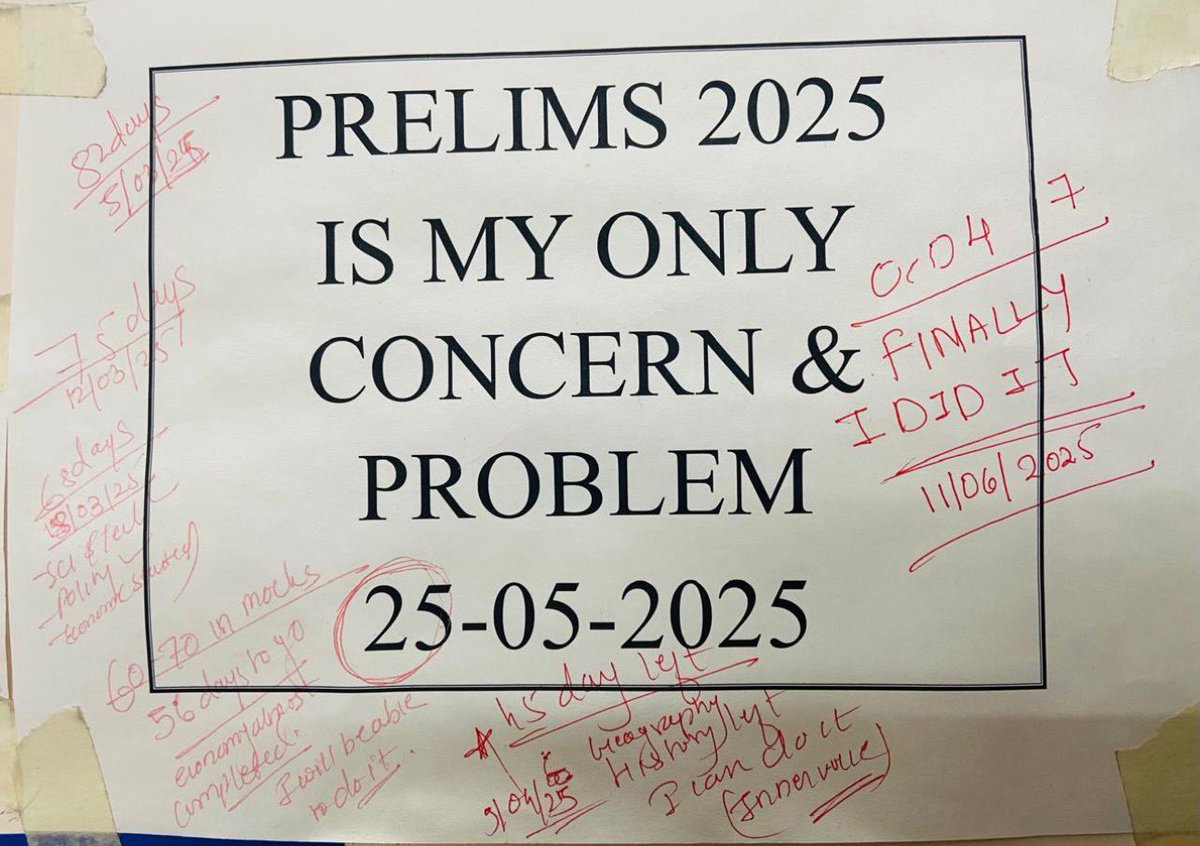 PRELIMS 2025
IS MY ONLY
CONCERN &
PROBLEM
25-05-2025
82 days
5/03/25
75 days
12/03/25
68 days
18/03/25
- Sci & Tech
- Polity
- Economic (started)
60-70 in mocks
56 days to go
economy almost
completed.
I will be able
to do it.
45 day left
9/04/25
Geography
History left
I can do it
(Inner voice)
7
FINALLY
I DID IT
11/06/2025